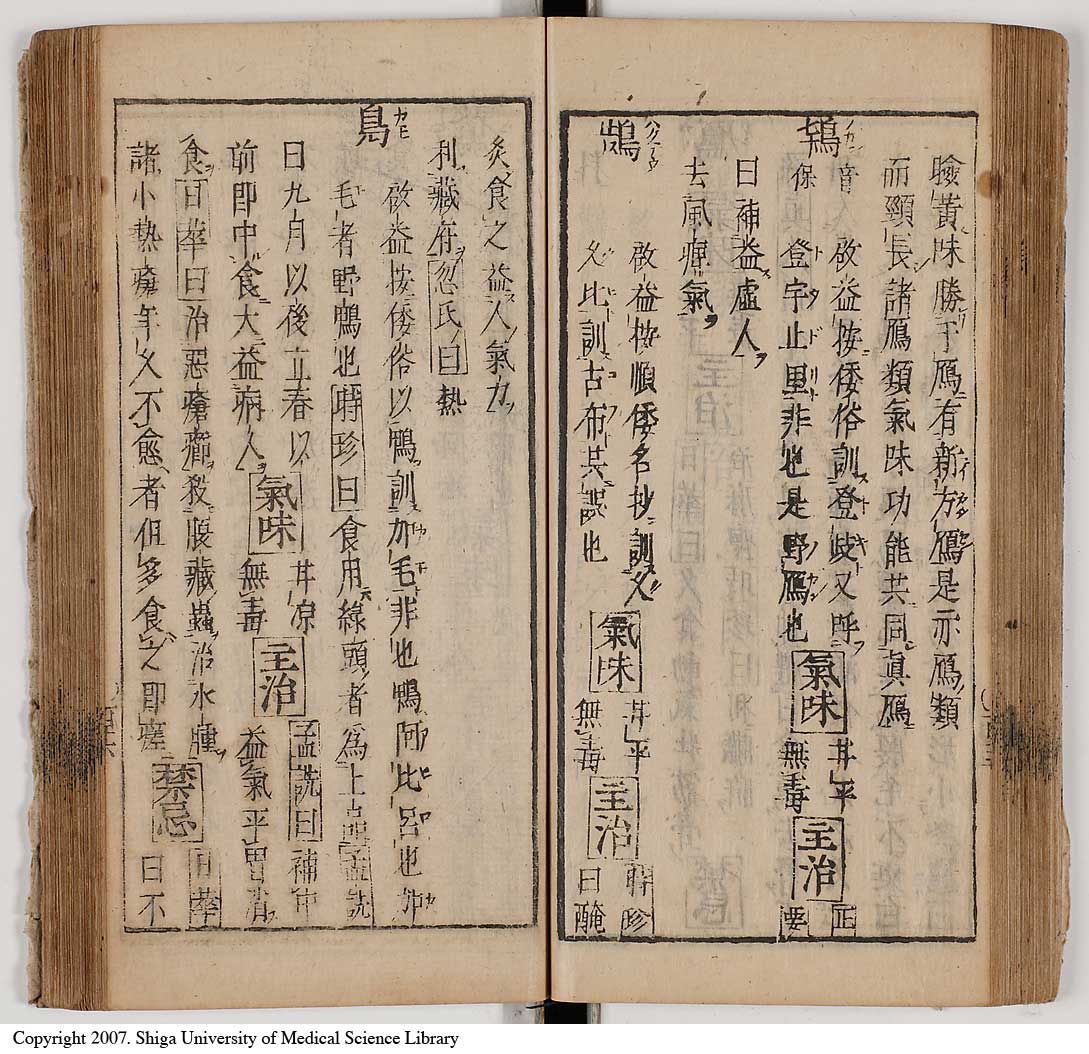 瞼黄味勝于鴈有新方鴈是亦鴈類
而頸長諸鴈類氣味功能共同眞鴈
鴇
音保
啓益按倭俗訓登岐又呼
登宇止里非也是野鴈也
氣味
甘平
無毒
主治
正要
曰補益虚人
去風痺氣
鵠
啓益按順倭名抄訓久
久比訓古布共誤也
氣味
甘平
無毒
主治
時珍
曰醃
炙食之益人氣力
利藏府忽氏曰熱
鳧
啓益按倭俗以鴨訓加毛非也鴨阿比呂也加
毛者野鴨也時珍曰食用綠頭者為上品孟詵
曰九月以後立春以
前即中食大益病人
氣味
甘凉
無毒
主治
孟詵曰補中
益氣平胃消
食日華曰治惡瘡癤殺腹藏蟲治水腫
諸小熱瘡年久不愈者但多食之即瘥
禁忌
日華
曰不
Copyright 2007. Shiga University of Medical Science Library